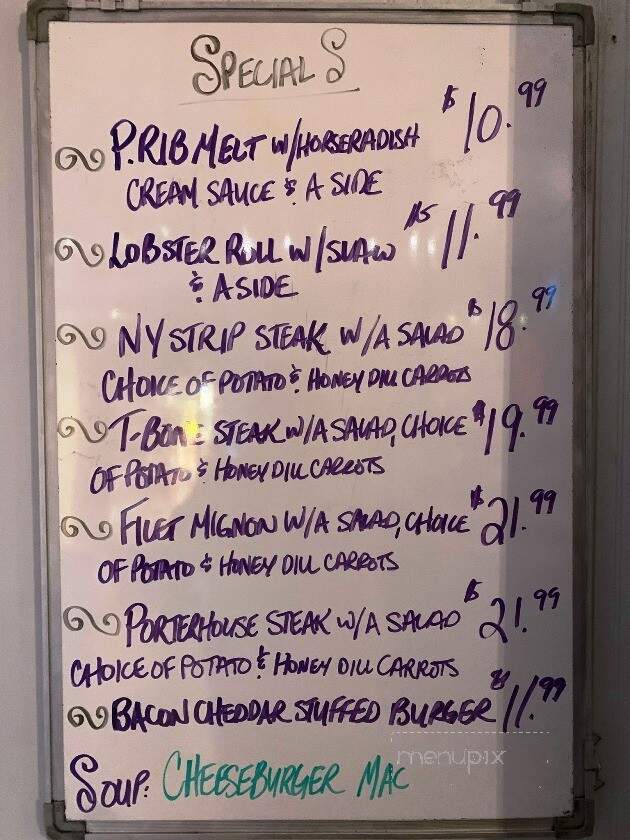 SPECIALS
P.RIB MELT W/HORSERADISH $10.99
CREAM SAUCE & A SIDE
LOBSTER ROLL W/SLAW $11.99
& A SIDE
NY STRIP STEAK W/A SALAD $18.99
CHOICE OF POTATO & HONEY DILL CARROTS
T-BONE STEAK W/A SALAD, CHOICE $19.99
OF POTATO & HONEY DILL CARROTS
FILET MIGNON W/A SALAD, CHOICE $21.99
OF POTATO & HONEY DILL CARROTS
PORTERHOUSE STEAK W/A SALAD $21.99
CHOICE OF POTATO & HONEY DILL CARROTS
BACON CHEDDAR STUFFED BURGER $11.99
menupix
SOUP: CHEESEBURGER MAC